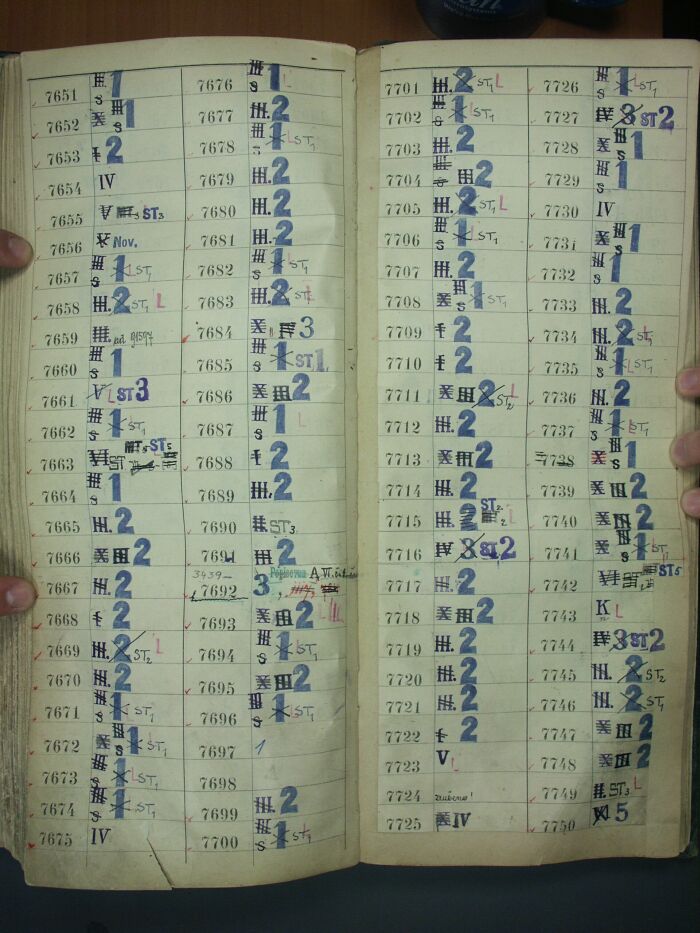 7651 1
S
7652 1
S
7653 2
7654 IV
7655 V ST3
7656 Nov.
7657 1 L ST1
S
7658 III. 2 ST1 L
7659 III. ad 91597
7660 1
S
7661 V L ST3
7662 1 ST1
S
7663 VI ST ST5
7664 1
S
7665 III. 2
7666 X III 2
7667 III. 2
7668 2
7669 III. 2 ST2 L
7670 III. 2
7671 1 ST1
S
7672 X 1 ST1
S
7673 1 L ST1
S
7674 1 ST1
S
7675 IV
7676 1 L
S
7677 III. 2
7678 1 L ST1
S
7679 III. 2
7680 III. 2
7681 III. 2
7682 1 ST1
S
7683 III. 2 ST1 L
7684 X 3
7685 1 ST1
S
7686 X III 2
7687 1 L
S
7688 2
7689 III. 2
7690 II. ST3.
7691 III 2
3439
7692 3
7693 X III 2 L
7694 1 ST1
S
7695 X III 2
7696 1 L ST1
S
7697 1
7698
7699 III. 2
7700 1 ST1
S
7701 III. 2 ST1 L
7702 1 L ST1
S
7703 III. 2
7704 III 2
S
7705 III. 2 ST1 L
7706 1 L ST1
S
7707 III. 2
7708 X 1 ST1
S
7709 2
7710 2
7711 X III 2 ST2 L
7712 III. 2
7713 X III 2
7714 III. 2
7715 III. 2 ST2 L
7716 IV 3 ST2
7717 III. 2
7718 X III 2
7719 III. 2
7720 III. 2
7721 III. 2
7722 2
7723 V L
7724
7725 X IV
7726 1 L ST1
S
7727 IV 3 ST2
7728 X 1
S
7729 1
S
7730 IV
7731 X 1
S
7732 1
S
7733 III. 2
7734 III. 2 ST1 L
7735 1 L ST1
S
7736 III. 2
7737 1 L ST1
S
7738 X 1
S
7739 X III 2
7740 X III 2
7741 X 1 ST1
S
7742 VI ST ST5
7743 K L
7744 IV 3 ST2
7745 III. 2 ST2
7746 III. 2 ST1
7747 X III 2
7748 X III 2
7749 II. ST3 L
7750 5